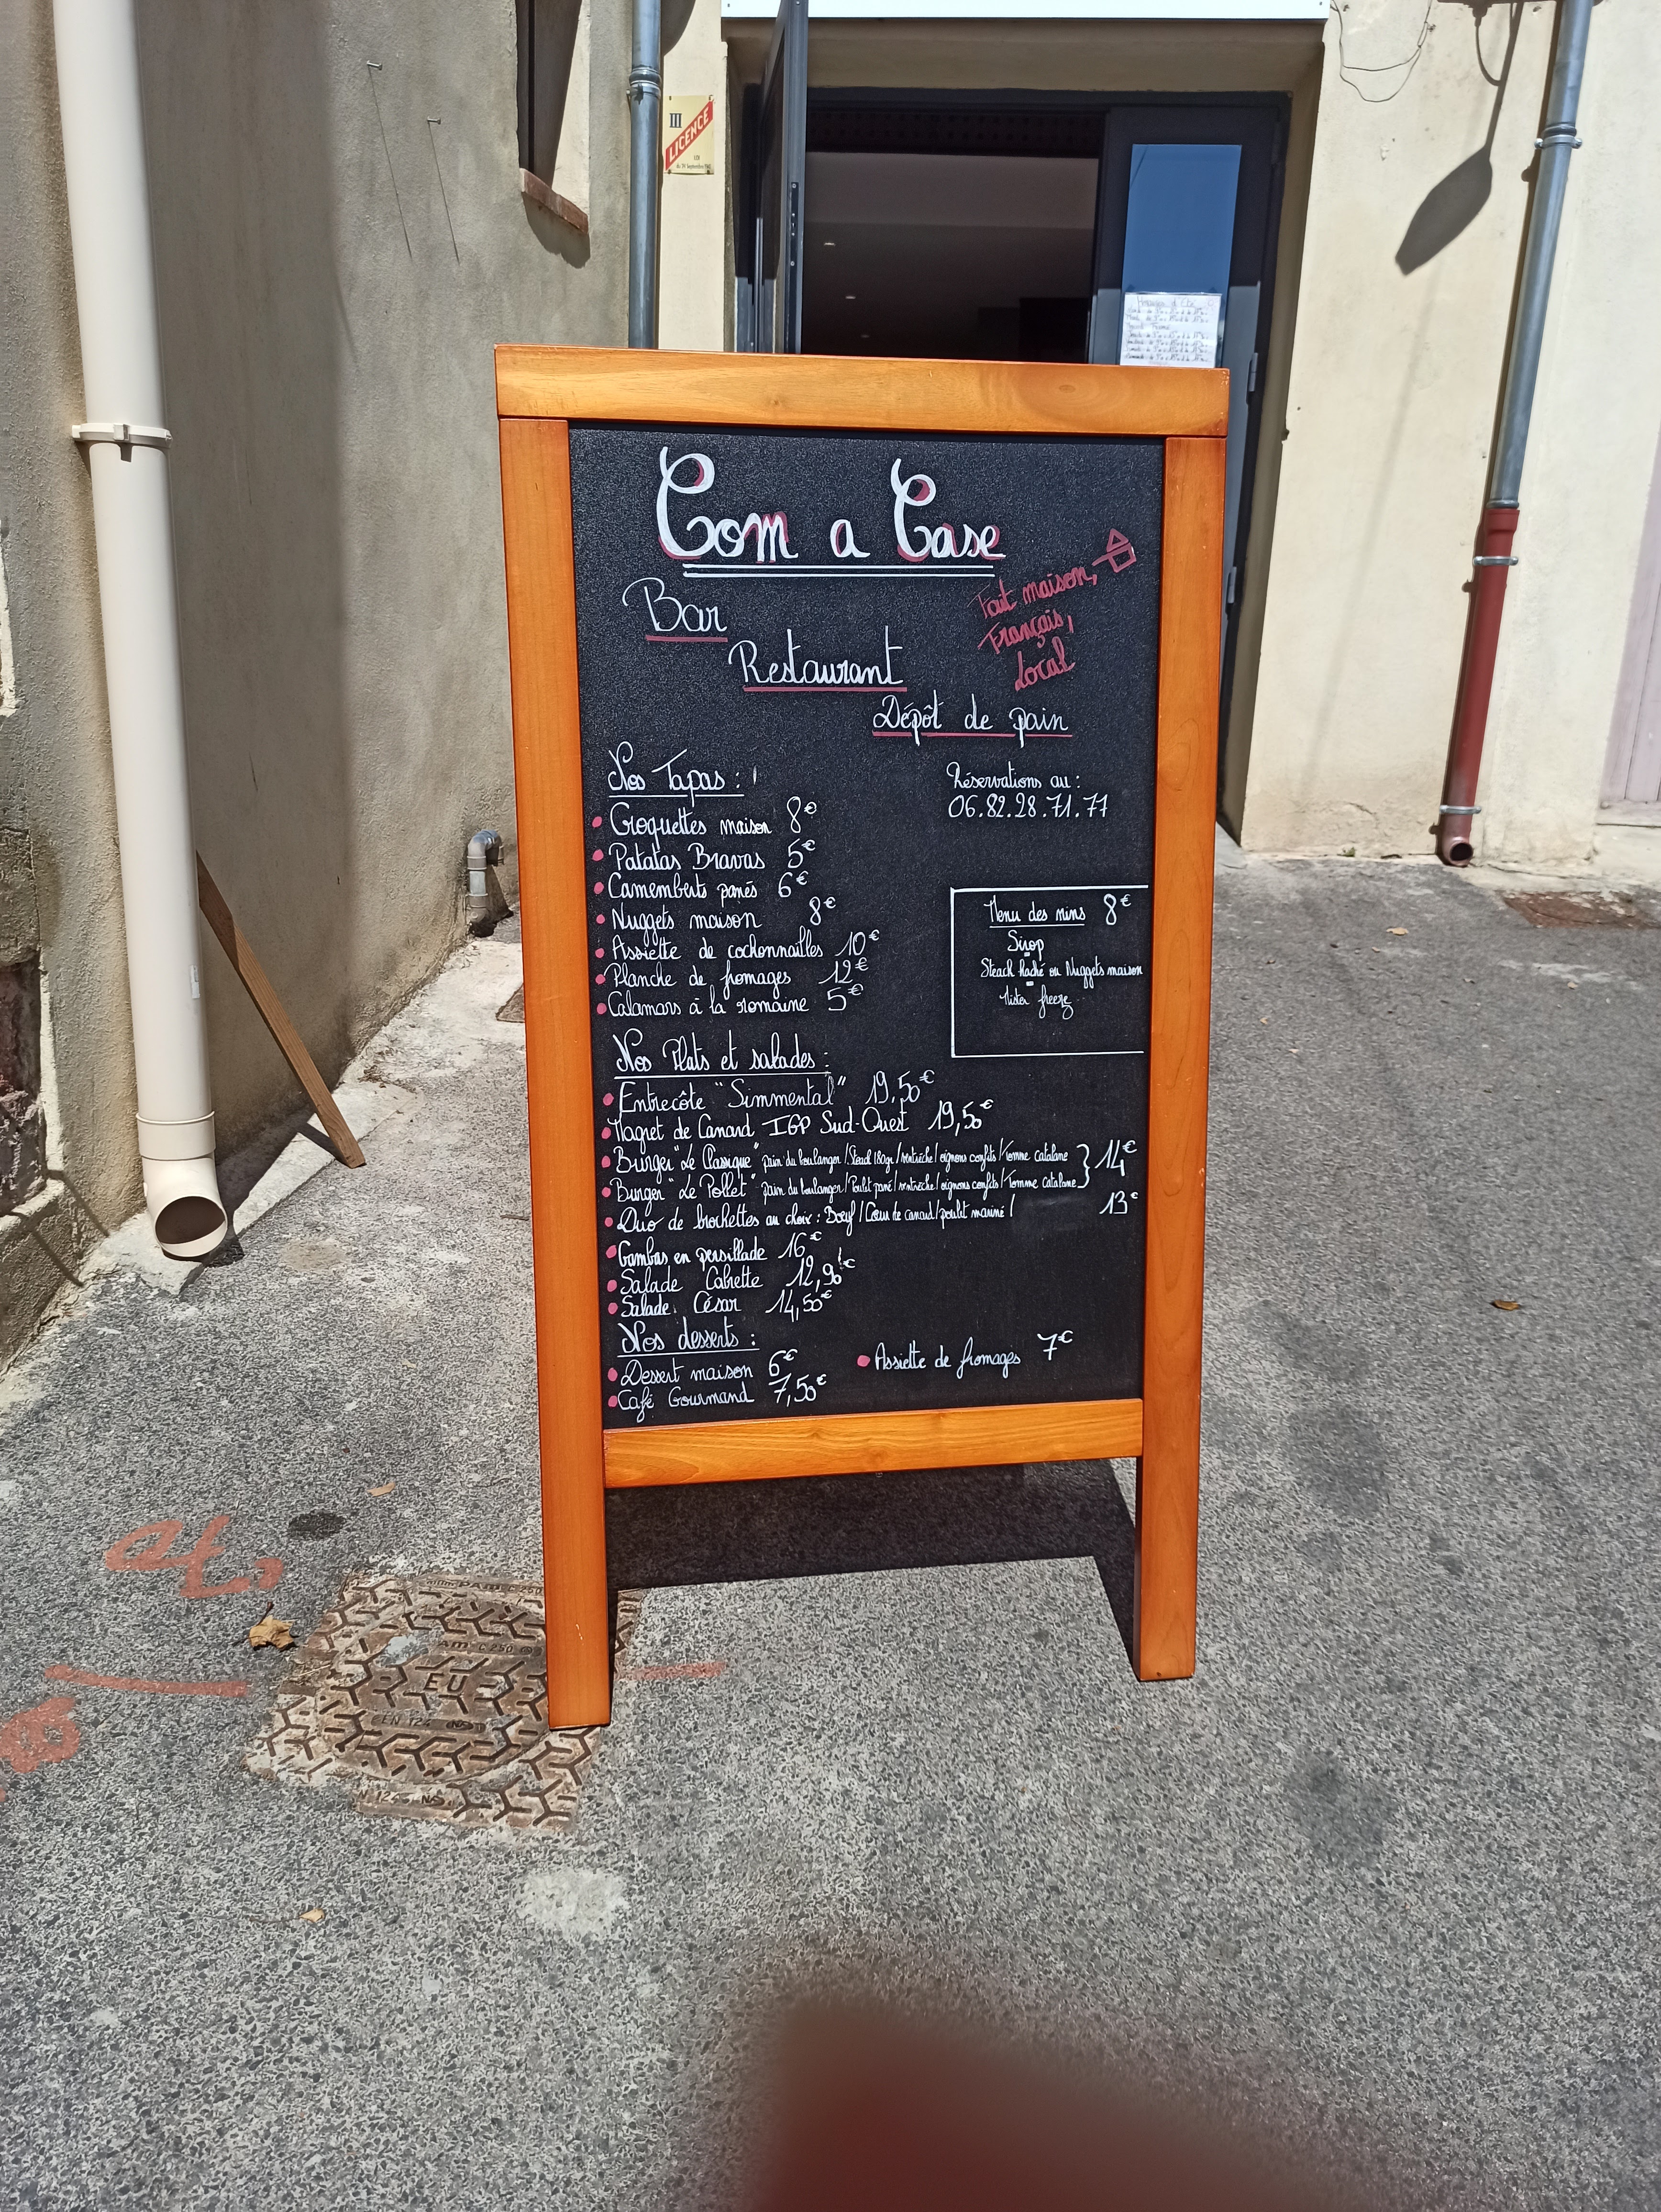 III
LICENCE
Com a Case
Fait maison,
Français,
Local
Bar
Restaurant
Dépôt de pain
Nos Tapas :
Croquettes maison 8€
Patatas Bravas 5€
Camemberts panés 6€
Nuggets maison 8€
Assiette de cochonnailles 10€
Planche de fromages 12€
Calamars à la romaine 5€
Réservations au :
06.82.28.71.77
Menu des mins 8€
Sirop
Steack haché ou Nuggets maison
Mister freeze
Nos Plats et salades :
Entrecôte "Simmental" 19,50€
Magret de Canard IGP Sud-Ouest 19,50€
Burger "Le Classique" pain du boulanger / Steack 180gr / ventrèche / oignons confits / Tomme catalane
Burger "Le Pollet" pain du boulanger / Poulet pané / ventrèche / oignons confits / Tomme Catalane 14€
Duo de brochettes au choix : Boeuf / Coeur de canard / poulet mariné / 13€
Gambas en persillade 16€
Salade Cabrette 12,90€
Salade César 14,50€
Nos desserts :
Dessert maison 6€
Café Gourmand 7,50€
Assiette de fromages 7€
AM C 250
EU
EN 124